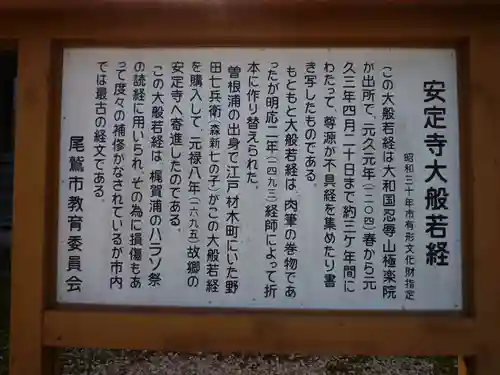 安定寺大般若経
昭和三十年市有形文化財指定
この大般若経は大和国忍辱山極楽院
が出所で、元久元年（一二〇四）春から元
久三年四月二十日まで約三ケ年間に
わたって、尊源が不具経を集めたり書
き写したものである。
もともと大般若経は、肉筆の巻物であ
ったが明応二年（一四九三）経師によって折
本に作り替えられた。
曽根浦の出身で江戸材木町にいた野
田七兵衛（森新七の子）がこの大般若経
を購入して、元禄八年（一六九五）故郷の
安定寺へ寄進したのである。
この大般若経は、梶賀浦のハラソ祭
の読経に用いられ、その為に損傷もあ
って度々の補修がなされているが市内
では最古の経文である。
尾鷲市教育委員会